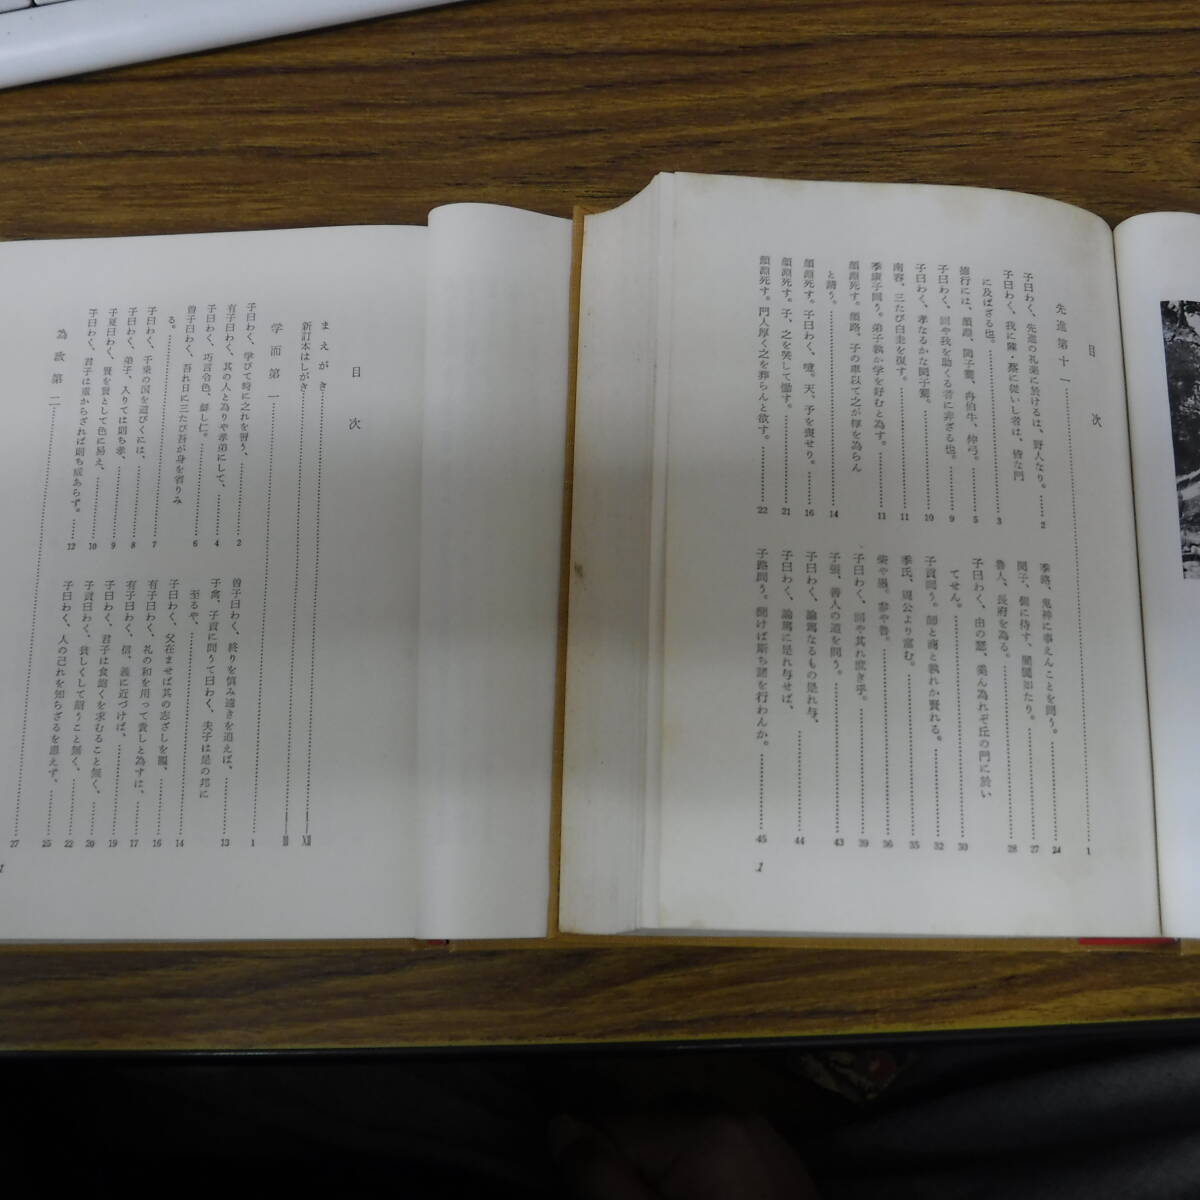 目次
先進第十一……1
子曰わく、先進の礼楽に於けるは、野人なり。……2
子曰わく、我に陳・蔡に従いし者は、皆な門
に及ばざる也。……3
徳行には、顔淵、閔子騫、冉伯牛、仲弓。……5
子曰わく、回や我を助くる者に非ざる也。……9
子曰わく、孝なるかな閔子騫。……10
南容、三たび白圭を復す。……11
季康子問う。弟子孰か学を好むと為す。……11
顔淵死す。顔路、子の車以て之が椁を為らん
と請う。……14
顔淵死す。子曰わく、噫。天、予を喪せり。……16
顔淵死す。子、之を哭して慟す。……21
顔淵死す。門人厚く之を葬らんと欲す。……22
季路、鬼神に事えんことを問う。……24
閔子、側に侍す、誾誾如たり。……27
魯人、長府を為る。……28
子曰わく、由の瑟、奚ん為れぞ丘の門に於い
てせん。……30
子貢問う。師と商と孰れか賢れる。……32
季氏、周公より富む。……35
柴や愚。参や魯。……36
子曰わく、回や其れ庶き乎。……39
子張、善人の道を問う。……43
子曰わく、論篤なるもの是れ与、
子曰わく、論篤に是れ与せば、……44
子路問う。聞けば斯ち諸を行わんか。……45
1
目次
まえがき……III
新訂本はしがき……XII
学而第一……1
子曰わく、学びて時に之れを習う、……2
有子曰わく、其の人と為りや孝弟にして、……4
子曰わく、巧言令色、鮮し仁。……6
曽子曰わく、吾れ日に三たび吾が身を省りみ
る。……6
子曰わく、千乗の国を道びくには、……7
子曰わく、弟子、入りては則ち孝、……8
子夏曰わく、賢を賢として色に易え、……9
子曰わく、君子は重からざれば則ち威あらず。……12
曽子曰わく、終りを慎み遠きを追えば、……13
子禽、子貢に問うて曰わく、夫子は是の邦に
至るや、……14
子曰わく、父在ませば其の志ざしを観、……16
有子曰わく、礼の和を用って貴しと為すは、……17
有子曰わく、信、義に近づけば、……19
子曰わく、君子は食飽くを求むること無く、……20
子貢曰わく、貧しくして諂うこと無く、……22
子曰わく、人の己れを知らざるを患えず。……25
為政第二……27
1